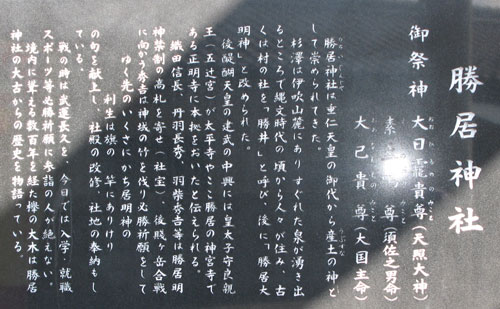 勝居神社
御祭神 大日孁貴尊(天照大神)
おお ひ るめのみこと
素 尊(須佐之男命)
大己貴尊(大国主命)
勝居神社は垂仁天皇の御代から産土の神と
うぶすな
して崇められてきた。
杉澤は伊吹山麓にありすぐれた泉が湧き出
るところで縄文時代の頃から人々が住み、古
くは村の社を「勝井」と呼び、後に「勝居大
明神」と改められた。
後醍醐天皇の建武の中興には皇太子守良親
王(五辻宮)が太平寺やここ勝居の神宮寺で
ある正明寺に本拠をおいたと伝えられる。
織田信長、丹羽長秀、羽柴秀吉等は勝居明
神禁制の高札を寄せ(社宝)、後賤ヶ岳合戦
に向かう秀吉は神域の竹を伐り必勝祈願をして
ゆく先のいくさにかち居明神の
利生は旗の竿にありけり
の句を献上し、社殿の改修、社地の奉納もし
ている。
戦の時は武運長久を、今日では入学・就職
スポーツ等必勝祈願に参詣の人が絶えない。
境内に聳える数百年を経た欅の大木は勝居
神社の太古からの歴史を物語っている。